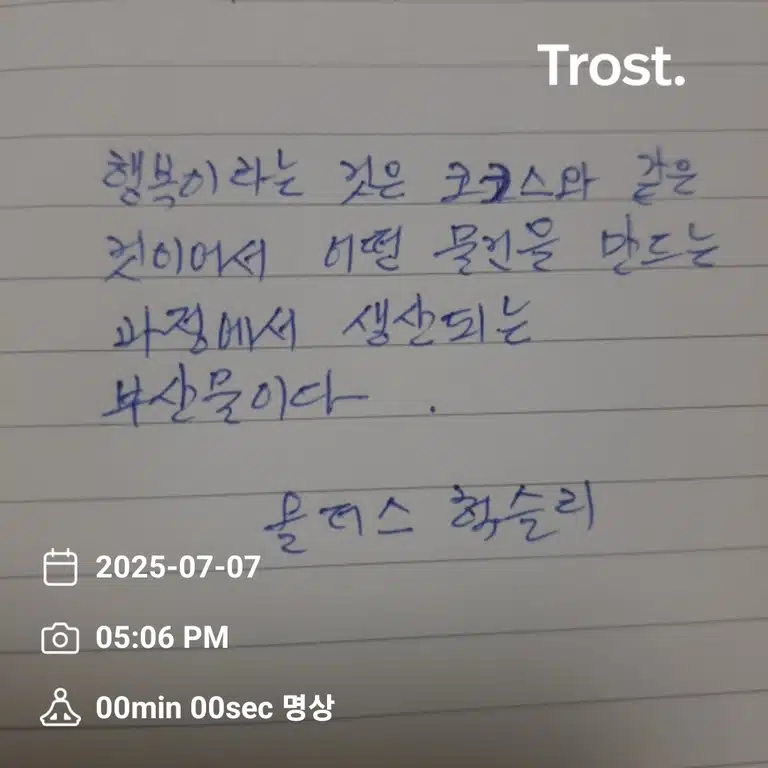 Trost.
행복이라는 것은 코크스와 같은
것이어서 어떤 물건을 만드는
과정에서 생산되는
부산물이다.
올더스 헉슬리
2025-07-07
05:06 PM
00min 00sec 명상